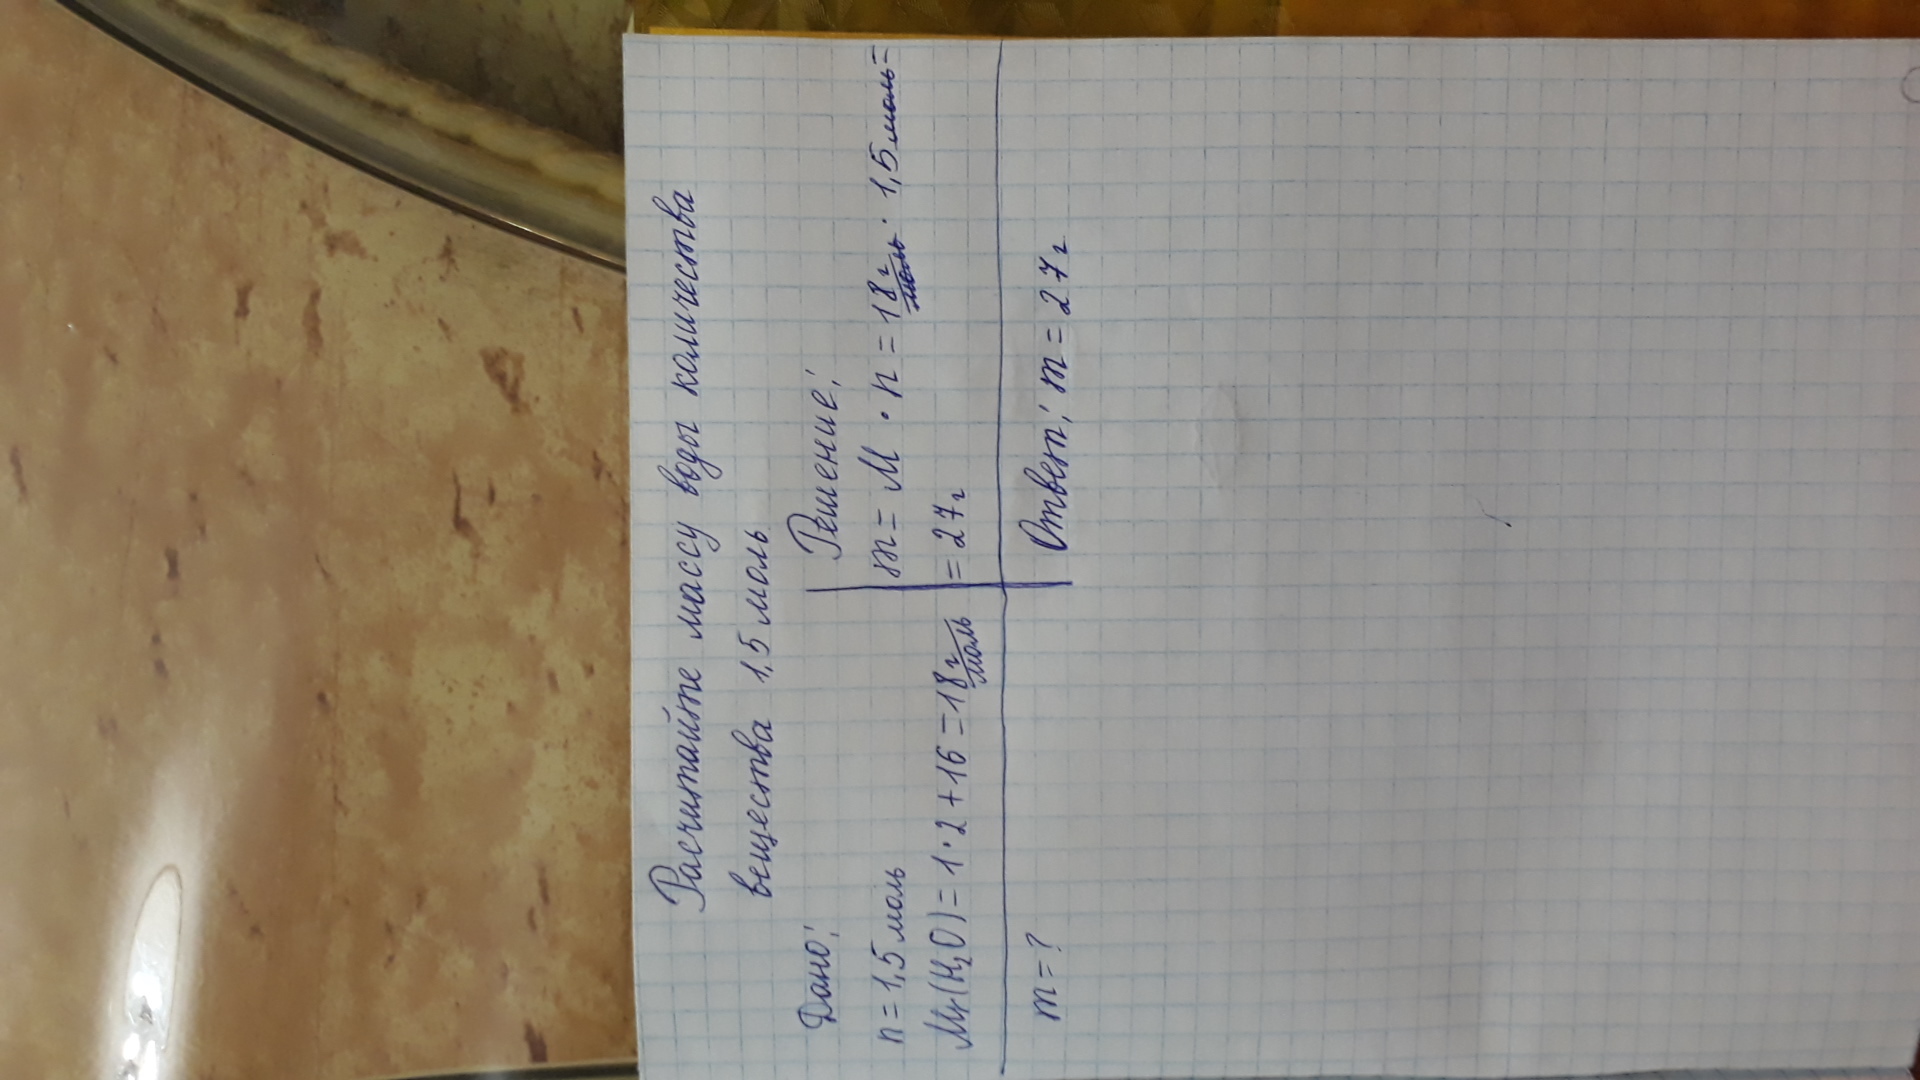 Расчитайте массу воды количества
вещества 1,5 моль
Дано:
n = 1,5 моль
Mr(H₂O) = 1 · 2 + 16 = 18 г/моль
m = ?
Решение:
m = M · n = 18 г/моль · 1,5 моль =
= 27 г
Ответ: m = 27 г